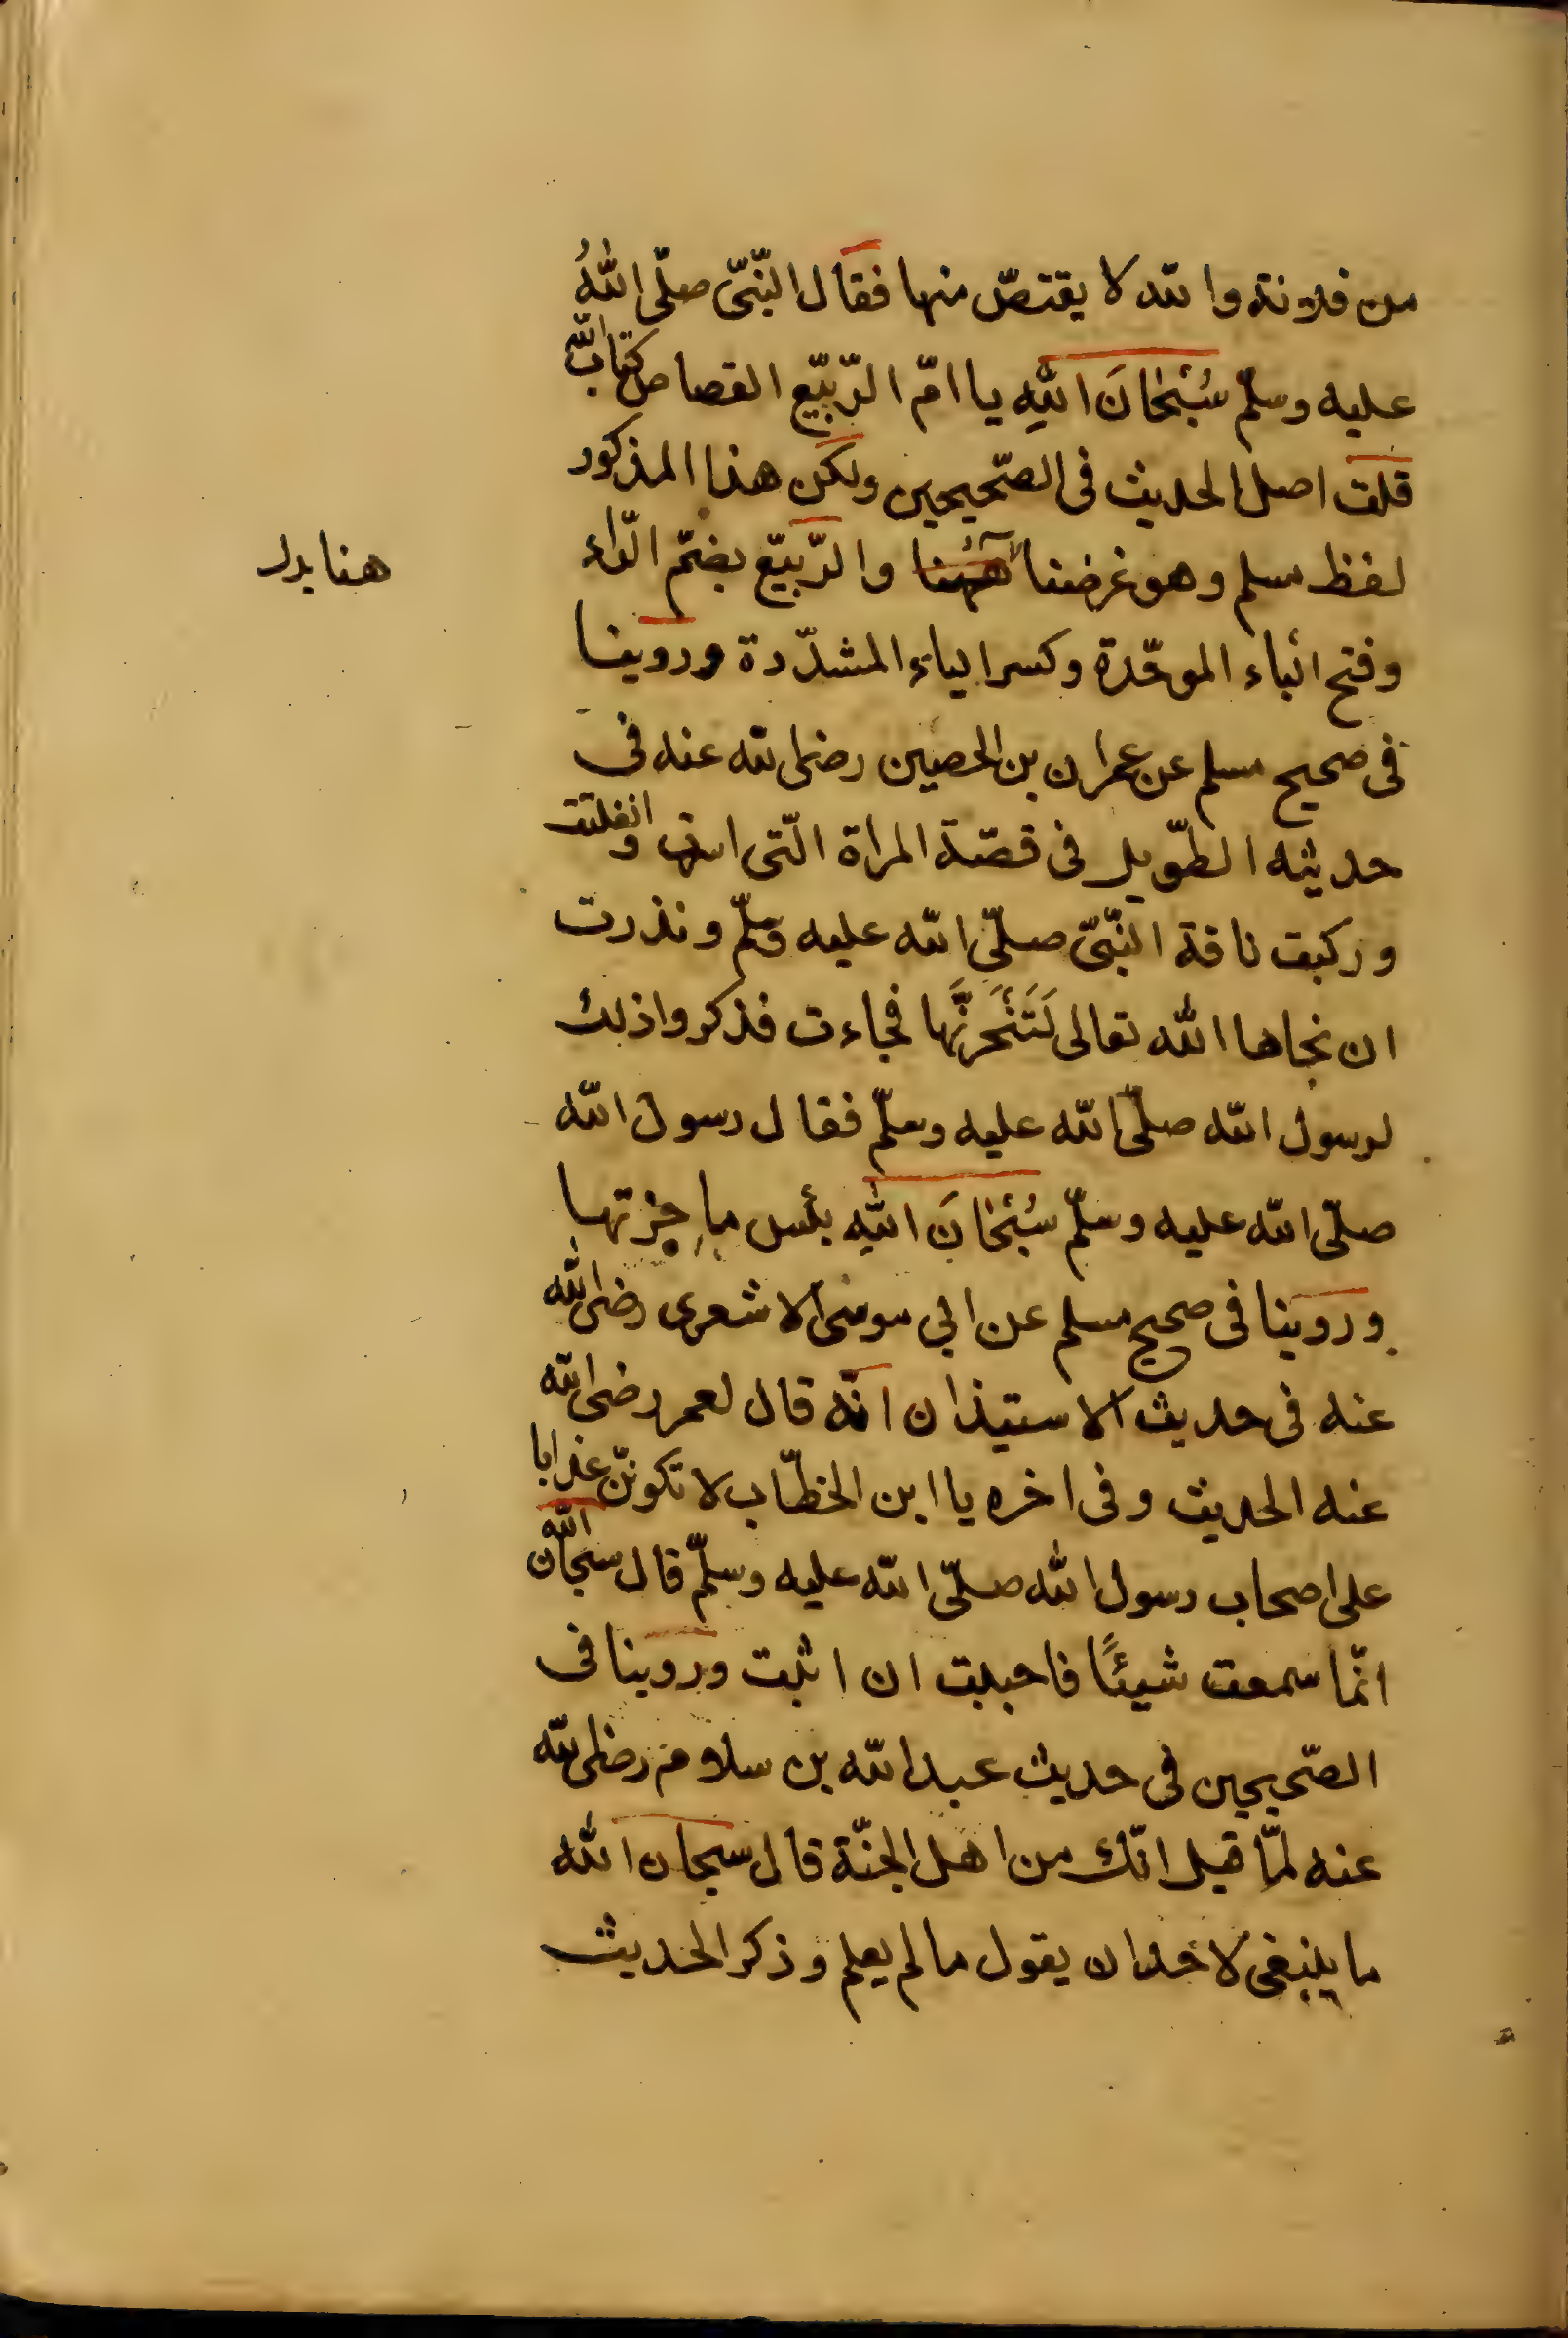 من فلانة والله لا يقتصّ منها فقال النّبّى صلّى اللهُ
عليه وسلّم سُبْحَانَ اللهِ يا امّ الرّبيّع القصاص كتاب الله
قلت اصل الحديث فى الصّحيحين ولكن هذا المذكور
لفظ مسلم وهو غرضنا ههنا والرّبيّع بضمّ الرّاء
هنا بدل
وفتح الباء الموحّدة وكسر الياء المشدّدة وروينا
فى صحيح مسلم عن عمران بن الحصين رضى الله عنه فى
حديثه الطّويل فى قصّة المراة الّتى اسرت وانفلتت
وركبت ناقة النّبّى صلّى الله عليه وسلّم ونذرت
ان نجاها الله تعالى لَتَنْحَرَنَّهَا فجاءت فذكروا ذلك
لرسول الله صلّى الله عليه وسلّم فقال رسول الله
صلّى الله عليه وسلّم سُبْحَانَ اللهِ بئس ما جزتها
وروينا فى صحيح مسلم عن ابي موسى الاشعرى رضى الله
عنه فى حديث الاستيذان انّه قال لعمر رضى الله
عنه الحديث وفى اخره يا ابن الخطّاب لا تكوننّ عذابا
على اصحاب رسول الله صلّى الله عليه وسلّم قال سبحان الله
انّما سمعت شيئًا فاحببت ان اثبت وروينا فى
الصّحيحين فى حديث عبد الله بن سلام رضى الله
عنه لمّا قيل انّك من اهل الجنّة قال سبحان الله
ما ينبغى لاحد ان يقول ما لم يعلم وذكر الحديث